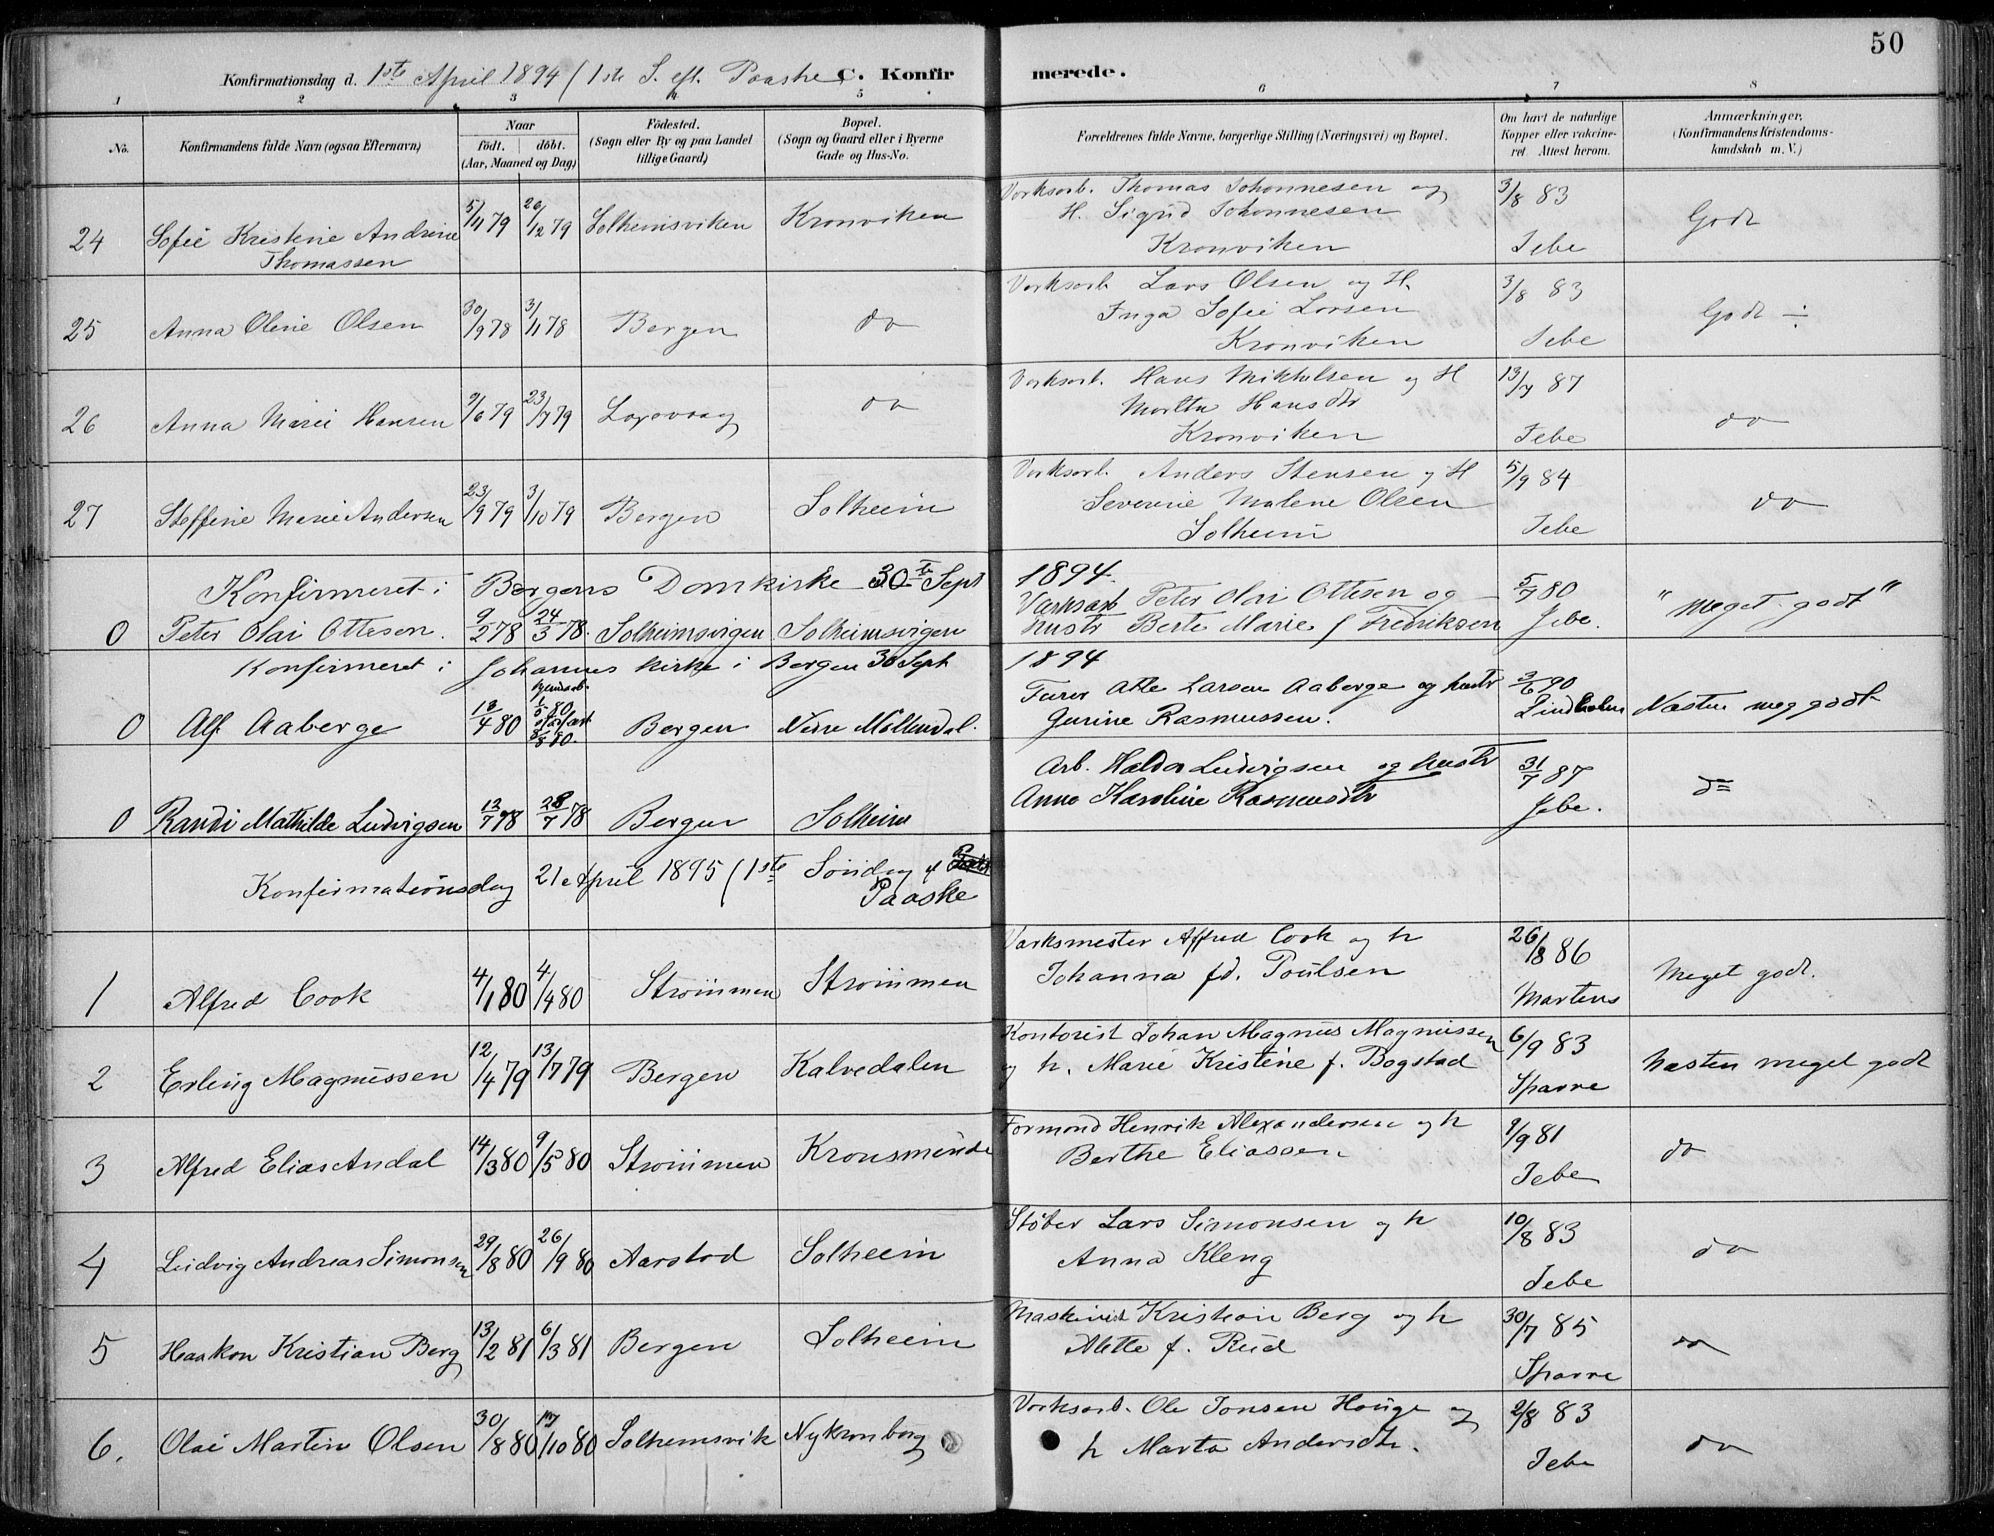 50
Konfirmationsdag d. 1ste April 1894 (1ste S. eft. Paaske) C. Konfirmerede.
1 2 3 4 5 6 7 8
No. Konfirmandens fulde Navn (ogsaa Efternavn) Naar født. døbt. (Aar, Maaned og Dag) Fødested. (Sogn eller By og paa Landet tillige Gaard) Bopæl. (Sogn og Gaard eller i Byerne Gade og Hus-No. Forældrenes fulde Navne, borgerlige Stilling (Næringsvei) og Bopæl. Om havt de naturlige Kopper eller vakcineret. Attest herom. Anmærkninger. (Konfirmandens Kristendomskundskab m. V.)
Værksarb. Thomas Johannesen og 3/8 83
24 Sofie Kristine Andrine 5/11 79 26/12 79 Solheimsviken Kronviken H. Sigrid Johannesen Godt
Thomassen Kronviken Jebe
Værksarb. Lars Olsen og H. 3/8 83
25 Anna Oline Olsen 30/9 78 3/11 78 Bergen do Inga Sofie Larsen Godt ÷
Kronviken Jebe
Værksarb. Hans Mikkelsen og H 13/7 87
26 Anna Marie Hansen 9/6 79 23/7 79 Laxevaag do Martha Hansdtr do
Kronviken Jebe
Værksarb. Anders Stensen og H 5/9 84
27 Steffine Marie Andersen 23/9 79 3/10 79 Bergen Solheim Severine Malene Olsen do
Solheim Jebe
Konfirmeret i Bergens Domkirke 30te Sept 1894.
Værksarb Peter Olai Ottesen og 5/7 80
0 Peter Olai Ottesen. 9/2 78 24/3 78. Solheimsvigen Solheimsvigen hustr Berte Marie f Fredriksen Jebe. "Meget godt"
Konfirmeret i Johannes kirke i Bergen 30 Sept 1894
hjemdøb. Atle Larsen Aaberge og hustr 3/6 90
0 Alf Aaberge 13/4 80 1/5 80 8/8 80. Bergen Nedre Møllendal. Gurine Rasmussen. Lindholm Næsten meg godt
Arb. Haldor Ludvigsen og hustr 31/7 87
0 Randi Mathilde Ludvigsen 12/7 78 28/7 78 Bergen Solheim Anne Karoline Rasmusdtr Jebe. do
Konfirmationsdag 21 April 1895 (1ste Søndag e
Paaske
Værksmester Alfred Cook og h 26/8 86
1 Alfred Cook 4/1 80 4/4 80 Strømmen Strømmen Johanna fd. Poulsen Martens Meget godt.
Kontorist Johan Magnus Magnussen 6/9 83
2 Erling Magnussen 12/4 79 13/7 79 Bergen Kalvedalen og h. Marie Kristine f. Bogstad Sparre næsten meget godt
Formand Henrik Alexandersen og h 9/9 81
3 Alfred Elias Andal 14/3 80 9/5 80 Strømmen Kronsminde Berthe Eliassen Jebe do
Støber Lars Simonsen og h 10/8 83
4 Ludvig Andreas Simonsen 29/8 80 26/9 80 Aarstad Solheim Anna Kleng Jebe do
Maskinist Kristian Berg og h 30/7 85
5 Haakon Kristian Berg 13/2 81 6/3 81 Bergen Solheim Alette f. Rud Sparre do
Værksarb. Ole Jonsen Hauge og 2/8 83
6. Olai Martin Olsen 30/8 80 17/10 80 Solheimsvik Nykronborg h Marta Andersdtr. Jebe do